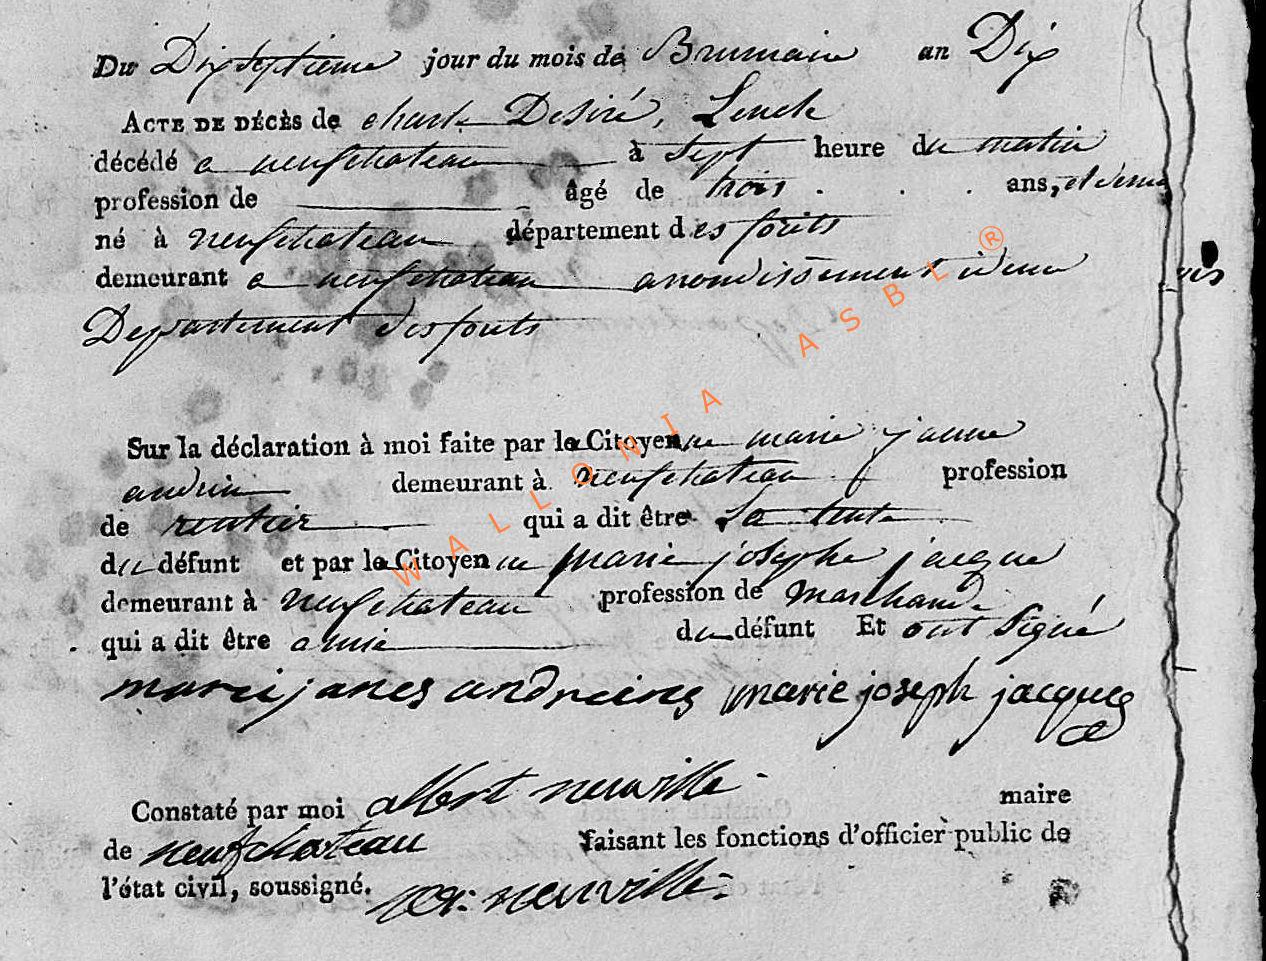 Du Dixseptieme jour du mois de Brumaire an Dix
ACTE DE DÉCÈS de charle Desiré, Linck
décédé a neufchateau à sept heure du matin
profession de âgé de trois . . . ans, et demi
né à neufchateau département des forêts
demeurant a neufchateau arrondissement idem
Departement des forets
Sur la déclaration à moi faite par la Citoyenne marie janne
andrin demeurant à neufchateau profession
de rentier qui a dit être la tente
du défunt et par la Citoyenne marie josephe jacque
demeurant à neufchateau profession de marchande
qui a dit être amie du défunt Et ont signé
marie janes andreins marie joseph jacques
Constaté par moi albert neuville maire
de neufchateau faisant les fonctions d'officier public de
l'état civil, soussigné. neuville
WALLONIA ASBL ®